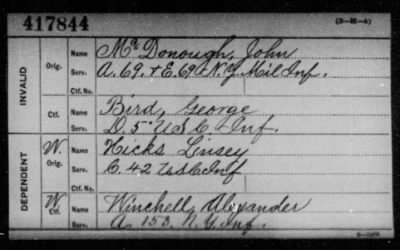 417844
(3-21-6)
INVALID
Orig.
Name McDonough, John
Serv. A. 69. & E. 69. N.Y. Mil Inf.
Ctf. No.
Ctf.
Name Bird, George
Serv. D. 5" U S C Inf.
DEPENDENT
W. Orig.
Name Hicks Linsey
Serv. C. 42 U.S.C. Inf
Ctf. No.
W Ctf.
Name Winchell, Alexander
Serv. A. 153. N.Y. Inf.